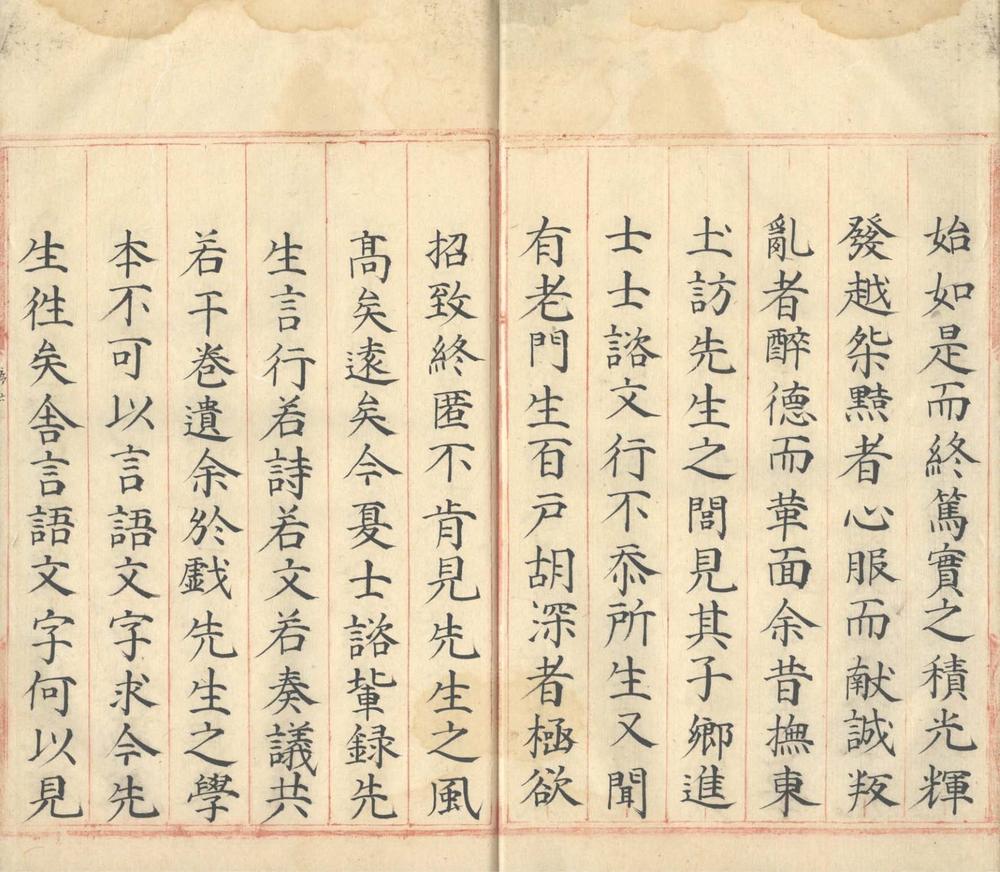 始如是而終篤實之積光輝
發越桀黠者心服而献誠叛
亂者醉德而革面余昔撫東
圡訪先生之閭見其子鄉進
士士諮文行不忝所生又聞
有老門生百戸胡深者極欲
招致終匿不肯見先生之風
髙矣逺矣今夏士諮軰録先
生言行若詩若文若奏議共
若干巻遺余於戯先生之學
本不可以言語文字求今先
生徃矣舎言語文字何以見